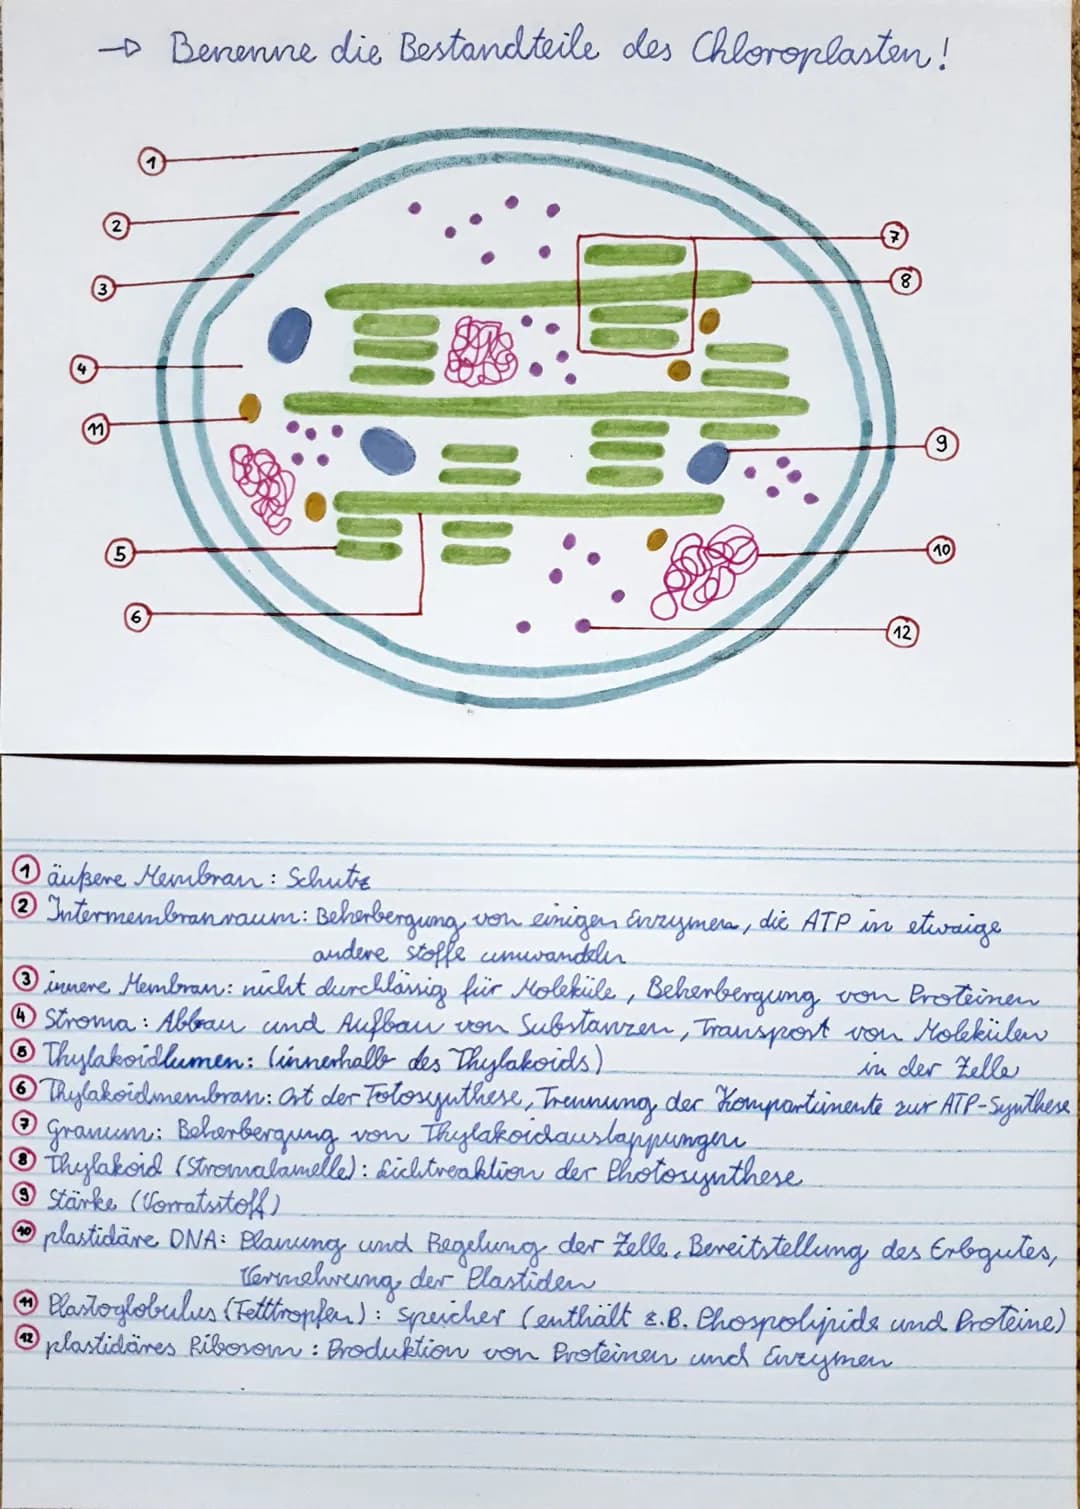 → Benenne die Bestandteile des Chloroplasten!
1
2
3
4
11
5
6
7
8
9
10
12
① äußere Membran: Schutz
② Intermembranraum: Beherbergung von einigen Enzymen, die ATP in etwaige
andere Stoffe umwandeln
③ innere Membran: nicht durchlässig für Moleküle, Beherbergung von Proteinen
④ Stroma: Abbau und Aufbau von Substanzen, Transport von Molekülen
in der Zelle
⑤ Thylakoidlumen: (innerhalb des Thylakoids)
⑥ Thylakoidmembran: Ort der Fotosynthese, Trennung der Kompartimente zur ATP-Synthese
⑦ Granum: Beherbergung von Thylakoidauslappungen
⑧ Thylakoid (Stromalamelle): Lichtreaktion der Photosynthese
⑨ Stärke (Vorratsstoff)
⑩ plastidäre DNA: Planung und Regelung der Zelle, Bereitstellung des Erbgutes,
Vermehrung der Plastiden
⑪ Plastoglobulus (Fetttropfen): Speicher (enthält z.B. Phospolipide und Proteine)
⑫ plastidäres Ribosom: Produktion von Proteinen und Enzymen